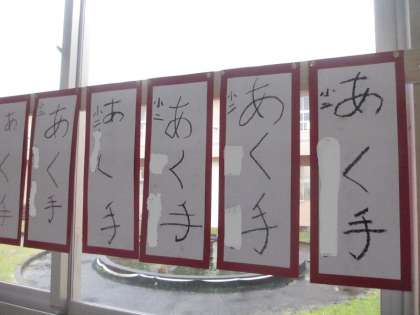 あく手
小二
あく手
小二
あく手
小二
あく手
小二
あく手
小二
あく手